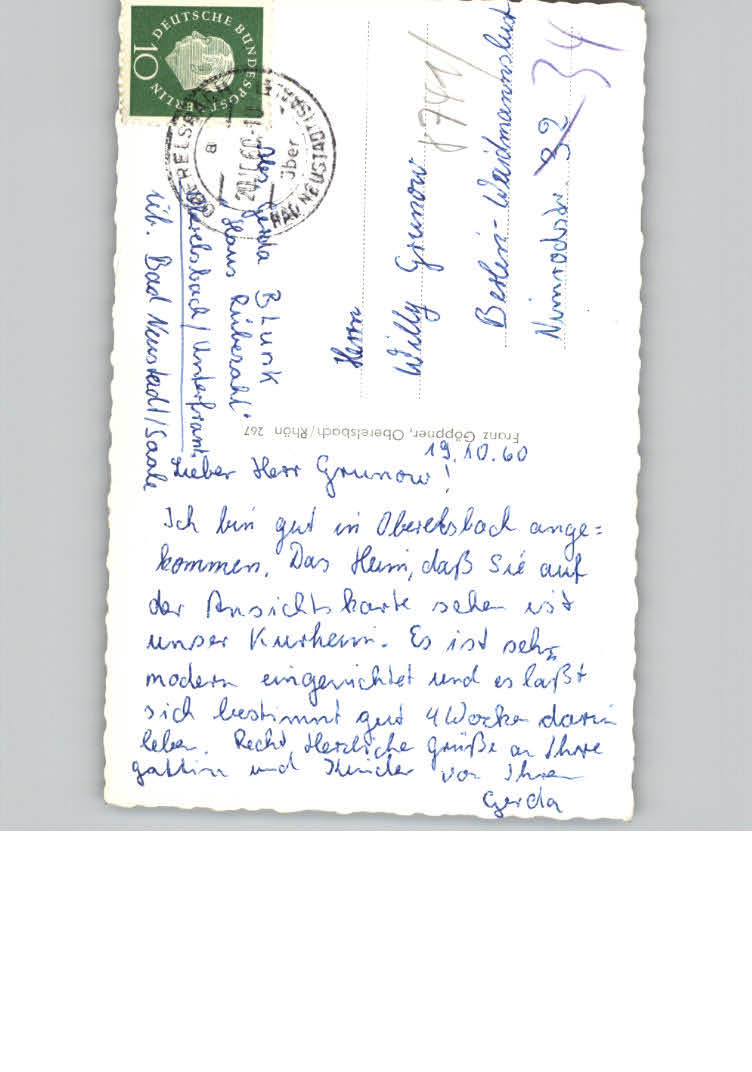 DEUTSCHE BUNDESPOST BERLIN
10
OBERELSBACH
über
BAD NEUSTADT (SAALE)
a
Gerda Blunk
"Haus Rübezahl"
Oberelsbach/Unterfrank.
üb. Bad Neustadt/Saale
Herrn
Willy Grunow
Berlin-Waidmannslust
Nimrodstr. 32 34
8741/
Franz Göppner, Oberelsbach/Rhön 267
19.10.60
Lieber Herr Grunow!
Ich bin gut in Oberelsbach ange=
kommen. Das Heim, daß Sie auf
der Ansichtskarte sehen ist
unser Kurheim. Es ist sehr
modern eingerichtet und es läßt
sich bestimmt gut 4 Wochen darin
leben. Recht Herzliche Grüße an Ihre
Gattin und Kinder von Ihrer
Gerda